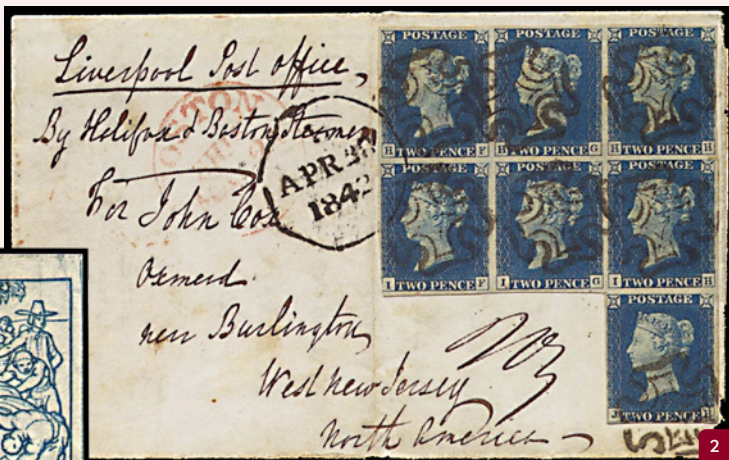 Liverpool Post office,
By Halifax & Boston Steamer
For John Cox
Oxmead
near Burlington
West new Jersey
North America
BOSTON
APR 27
1842
POSTAGE
H TWO PENCE F
POSTAGE
H TWO PENCE G
POSTAGE
H TWO PENCE H
POSTAGE
I TWO PENCE F
POSTAGE
I TWO PENCE G
POSTAGE
I TWO PENCE H
POSTAGE
J TWO PENCE H
2